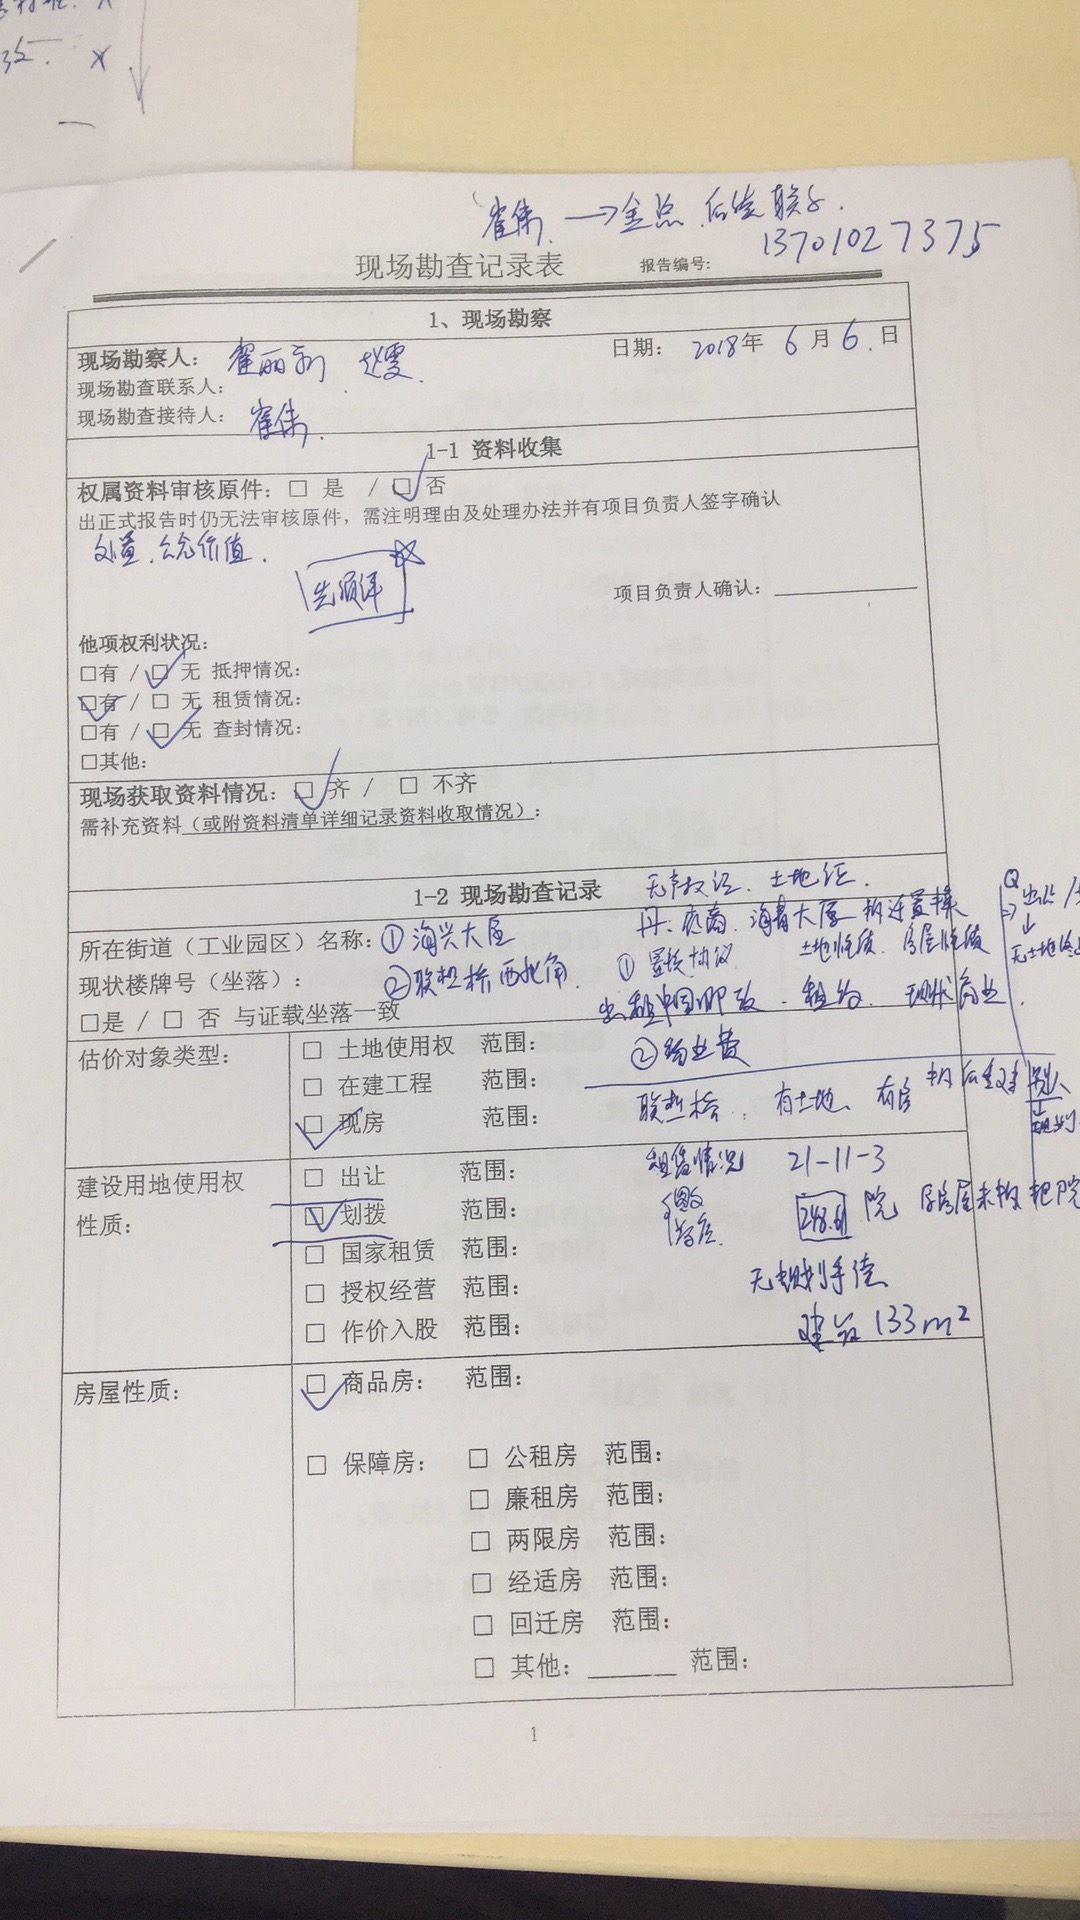 35. ×
崔伟 → 金总
13701027375
现场勘查记录表 报告编号:
1、现场勘察
现场勘察人: 翟丽 赵雯 日期: 2018年 6月 6日
现场勘查联系人:
现场勘查接待人: 崔伟
1-1 资料收集
权属资料审核原件: □ 是 / ☑ 否
出正式报告时仍无法审核原件, 需注明理由及处理办法并有项目负责人签字确认
处置、公允价值.
先预评
项目负责人确认: ________
他项权利状况:
□有 / ☑ 无 抵押情况:
☑有 / □ 无 租赁情况:
□有 / ☑ 无 查封情况:
□其他:
现场获取资料情况: ☑ 齐 / □ 不齐
需补充资料(或附资料清单详细记录资料收取情况):
1-2 现场勘查记录 无产权证、土地证.
所在街道(工业园区)名称: ① 海兴大厦
大厦 拆迁置换
现状楼牌号(坐落): ② 西北角
① 置换协议 土地性质、房屋性质
□是 / □ 否 与证载坐落一致
出租中国邮政、租约、现状商业.
② 物业费
估价对象类型: □ 土地使用权 范围:
□ 在建工程 范围:
☑ 现房 范围:
有土地、有房
建设用地使用权性质: □ 出让 范围:
租售情况 21-11-3
☑ 划拨 范围:
248.61 院
□ 国家租赁 范围:
□ 授权经营 范围:
无规划手续
□ 作价入股 范围:
133m²
房屋性质: ☑ 商品房: 范围:
□ 保障房: □ 公租房 范围:
□ 廉租房 范围:
□ 两限房 范围:
□ 经适房 范围:
□ 回迁房 范围:
□ 其他: ________ 范围:
1